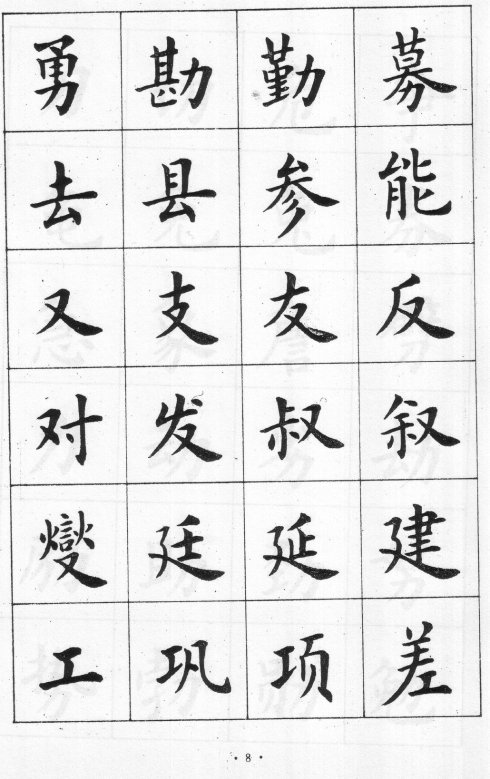 勇勘勤募
去县参能
又支友反
对发叔叙
燮廷延建
工巩项差
· 8 ·